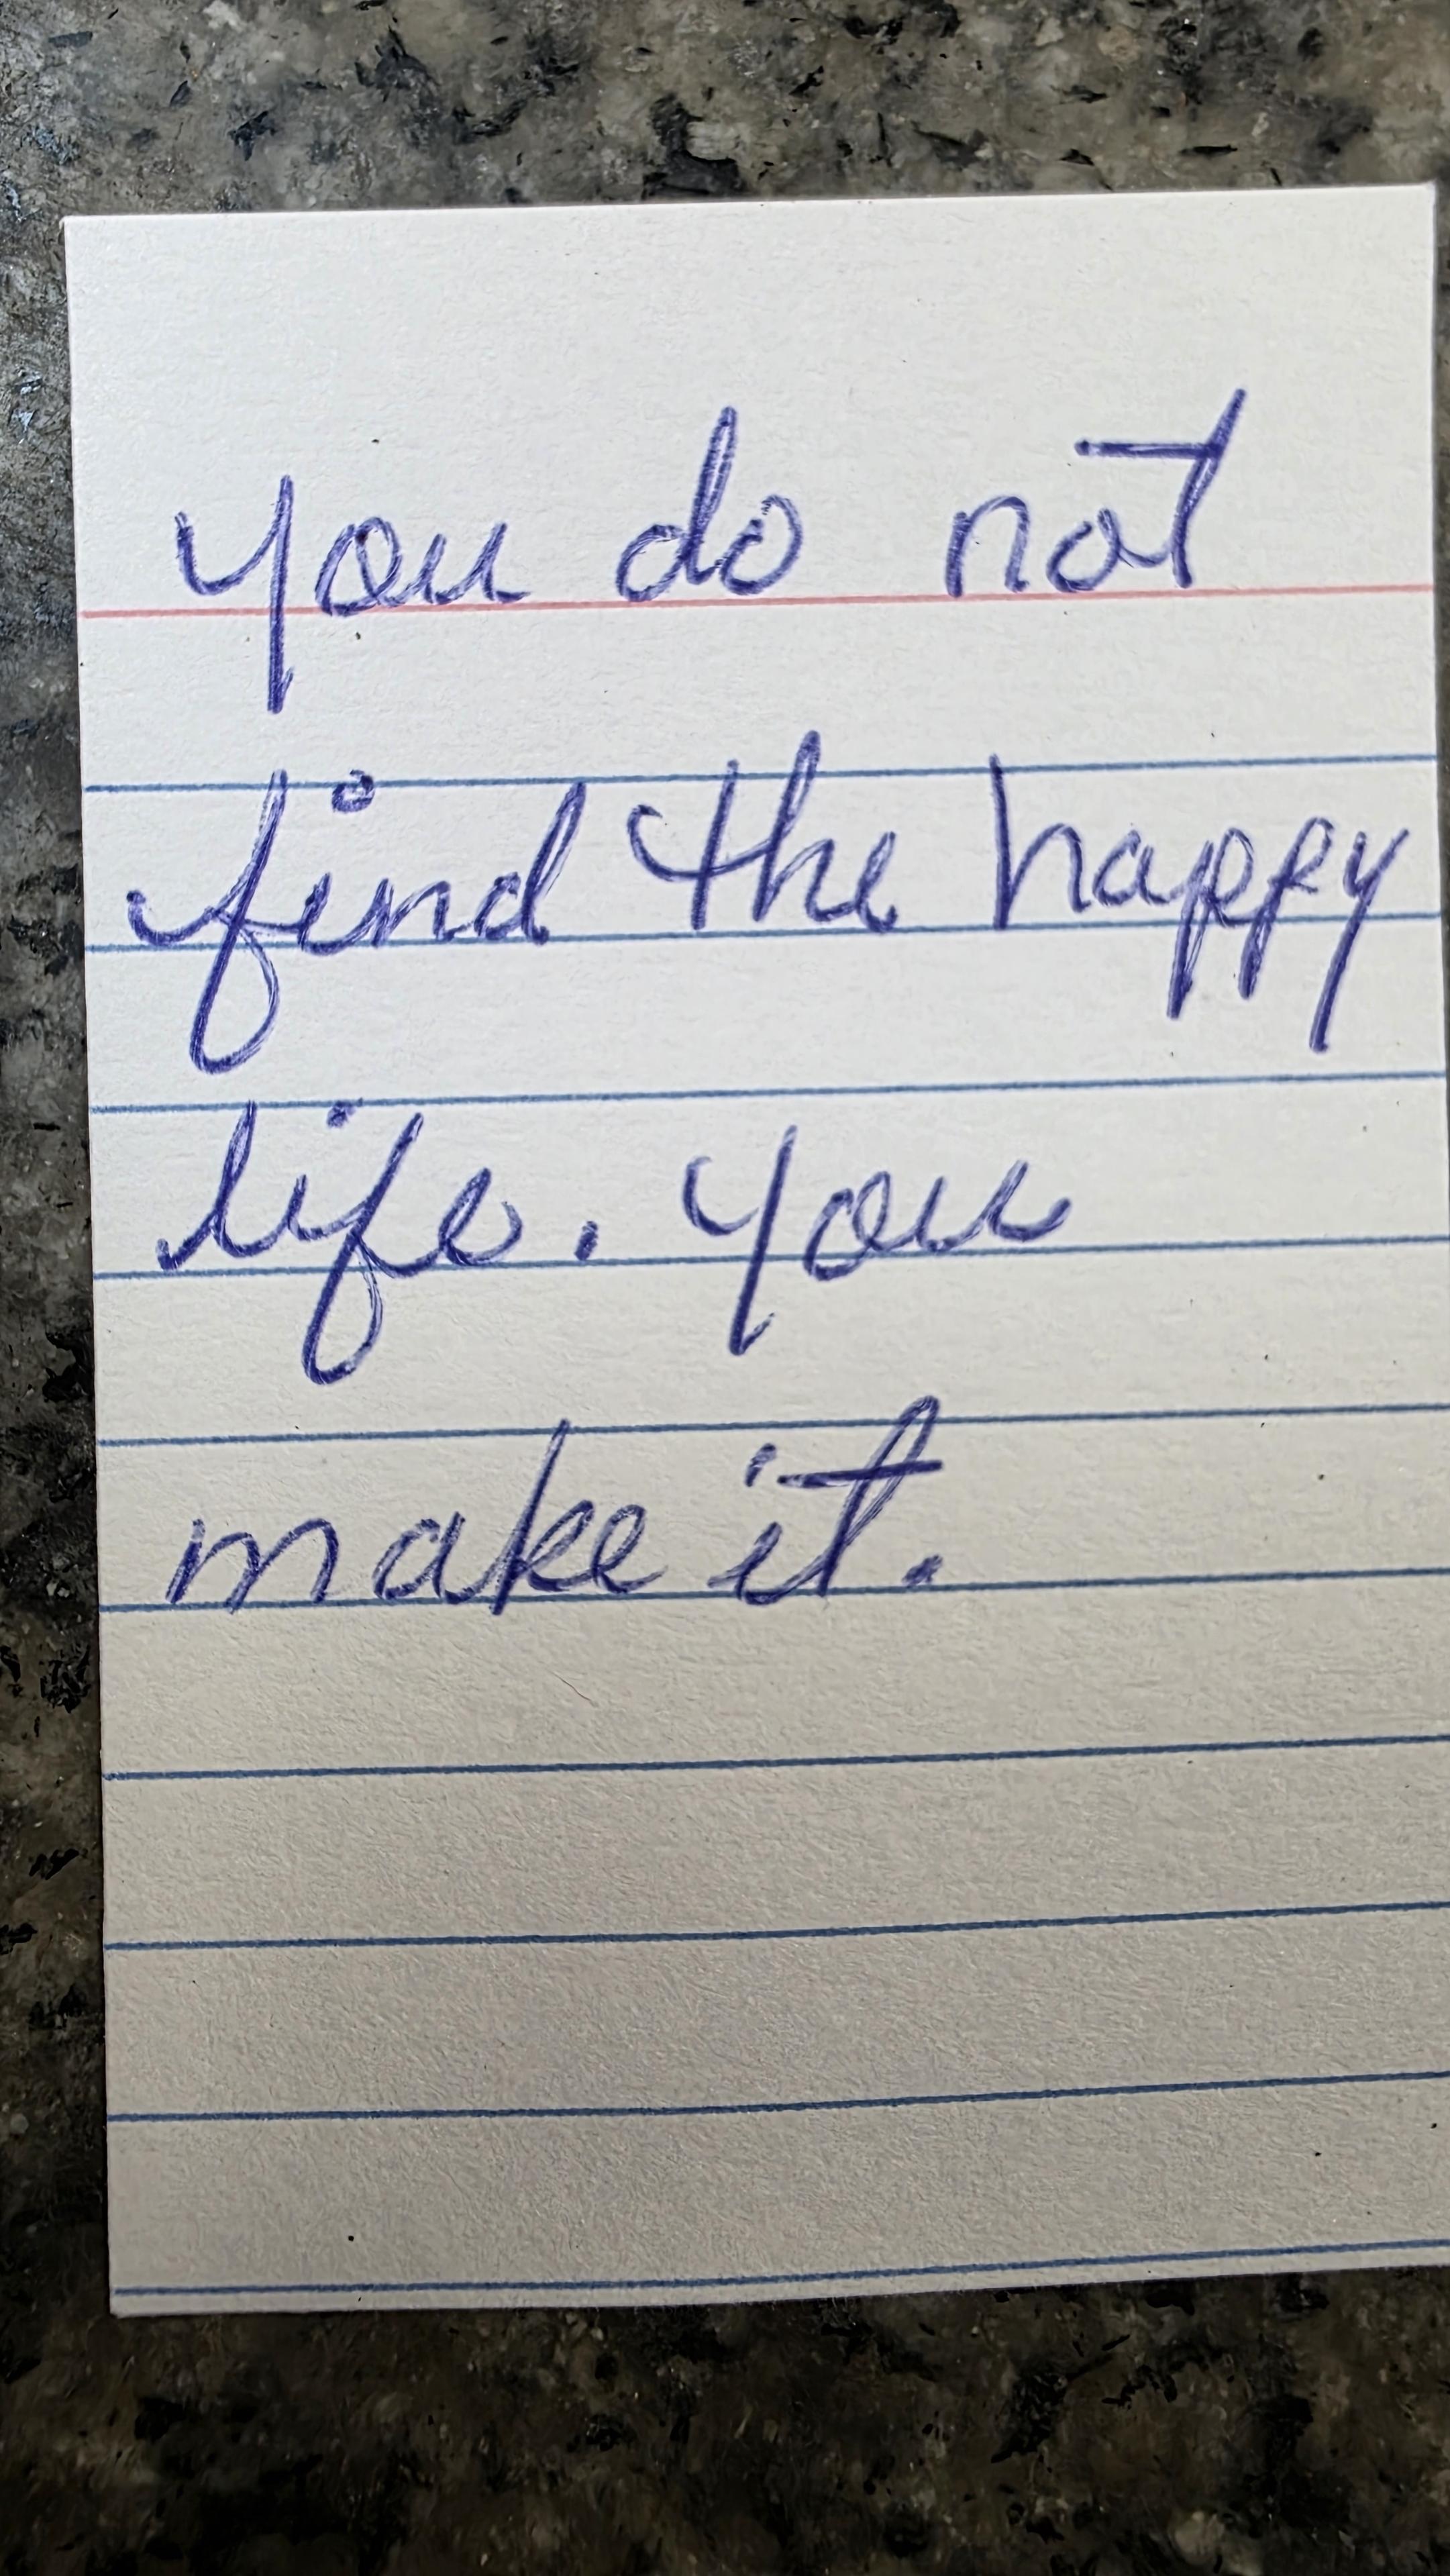 you do not
find the happy
life. you
make it.